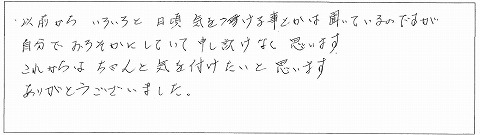 ・以前から いろいろと 日頃 気をつける事とかは 聞いているのですが
自分で おろそかにしていて 申し訳けなく 思います
これからは ちゃんと 気を付けたいと 思います
ありがとうございました。